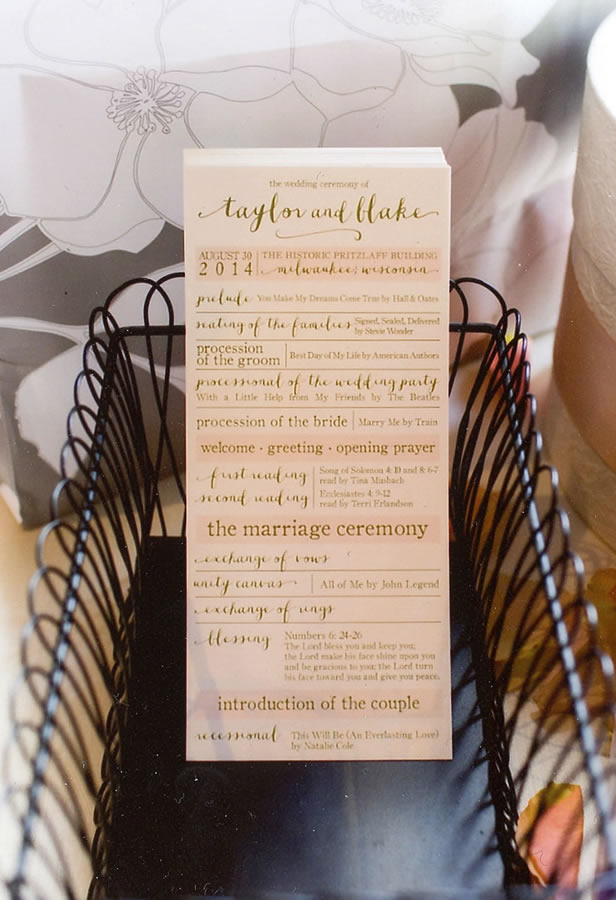 the wedding ceremony of
taylor and blake
AUGUST 30
2014
THE HISTORIC PRITZLAFF BUILDING
milwaukee, wisconsin
prelude You Make My Dreams Come True by Hall & Oates
seating of the families Signed, Sealed, Delivered
by Stevie Wonder
procession
of the groom
Best Day of My Life by American Authors
processional of the wedding party
With a Little Help from My Friends by The Beatles
procession of the bride Marry Me by Train
welcome · greeting · opening prayer
first reading Song of Solomon 4: 10 and 8: 6-7
read by Tina Misbach
second reading Ecclesiastes 4: 9-12
read by Terri Erlandson
the marriage ceremony
exchange of vows
unity canvas All of Me by John Legend
exchange of rings
blessing Numbers 6: 24-26
The Lord bless you and keep you;
the Lord make his face shine upon you
and be gracious to you; the Lord turn
his face toward you and give you peace.
introduction of the couple
recessional This Will Be (An Everlasting Love)
by Natalie Cole